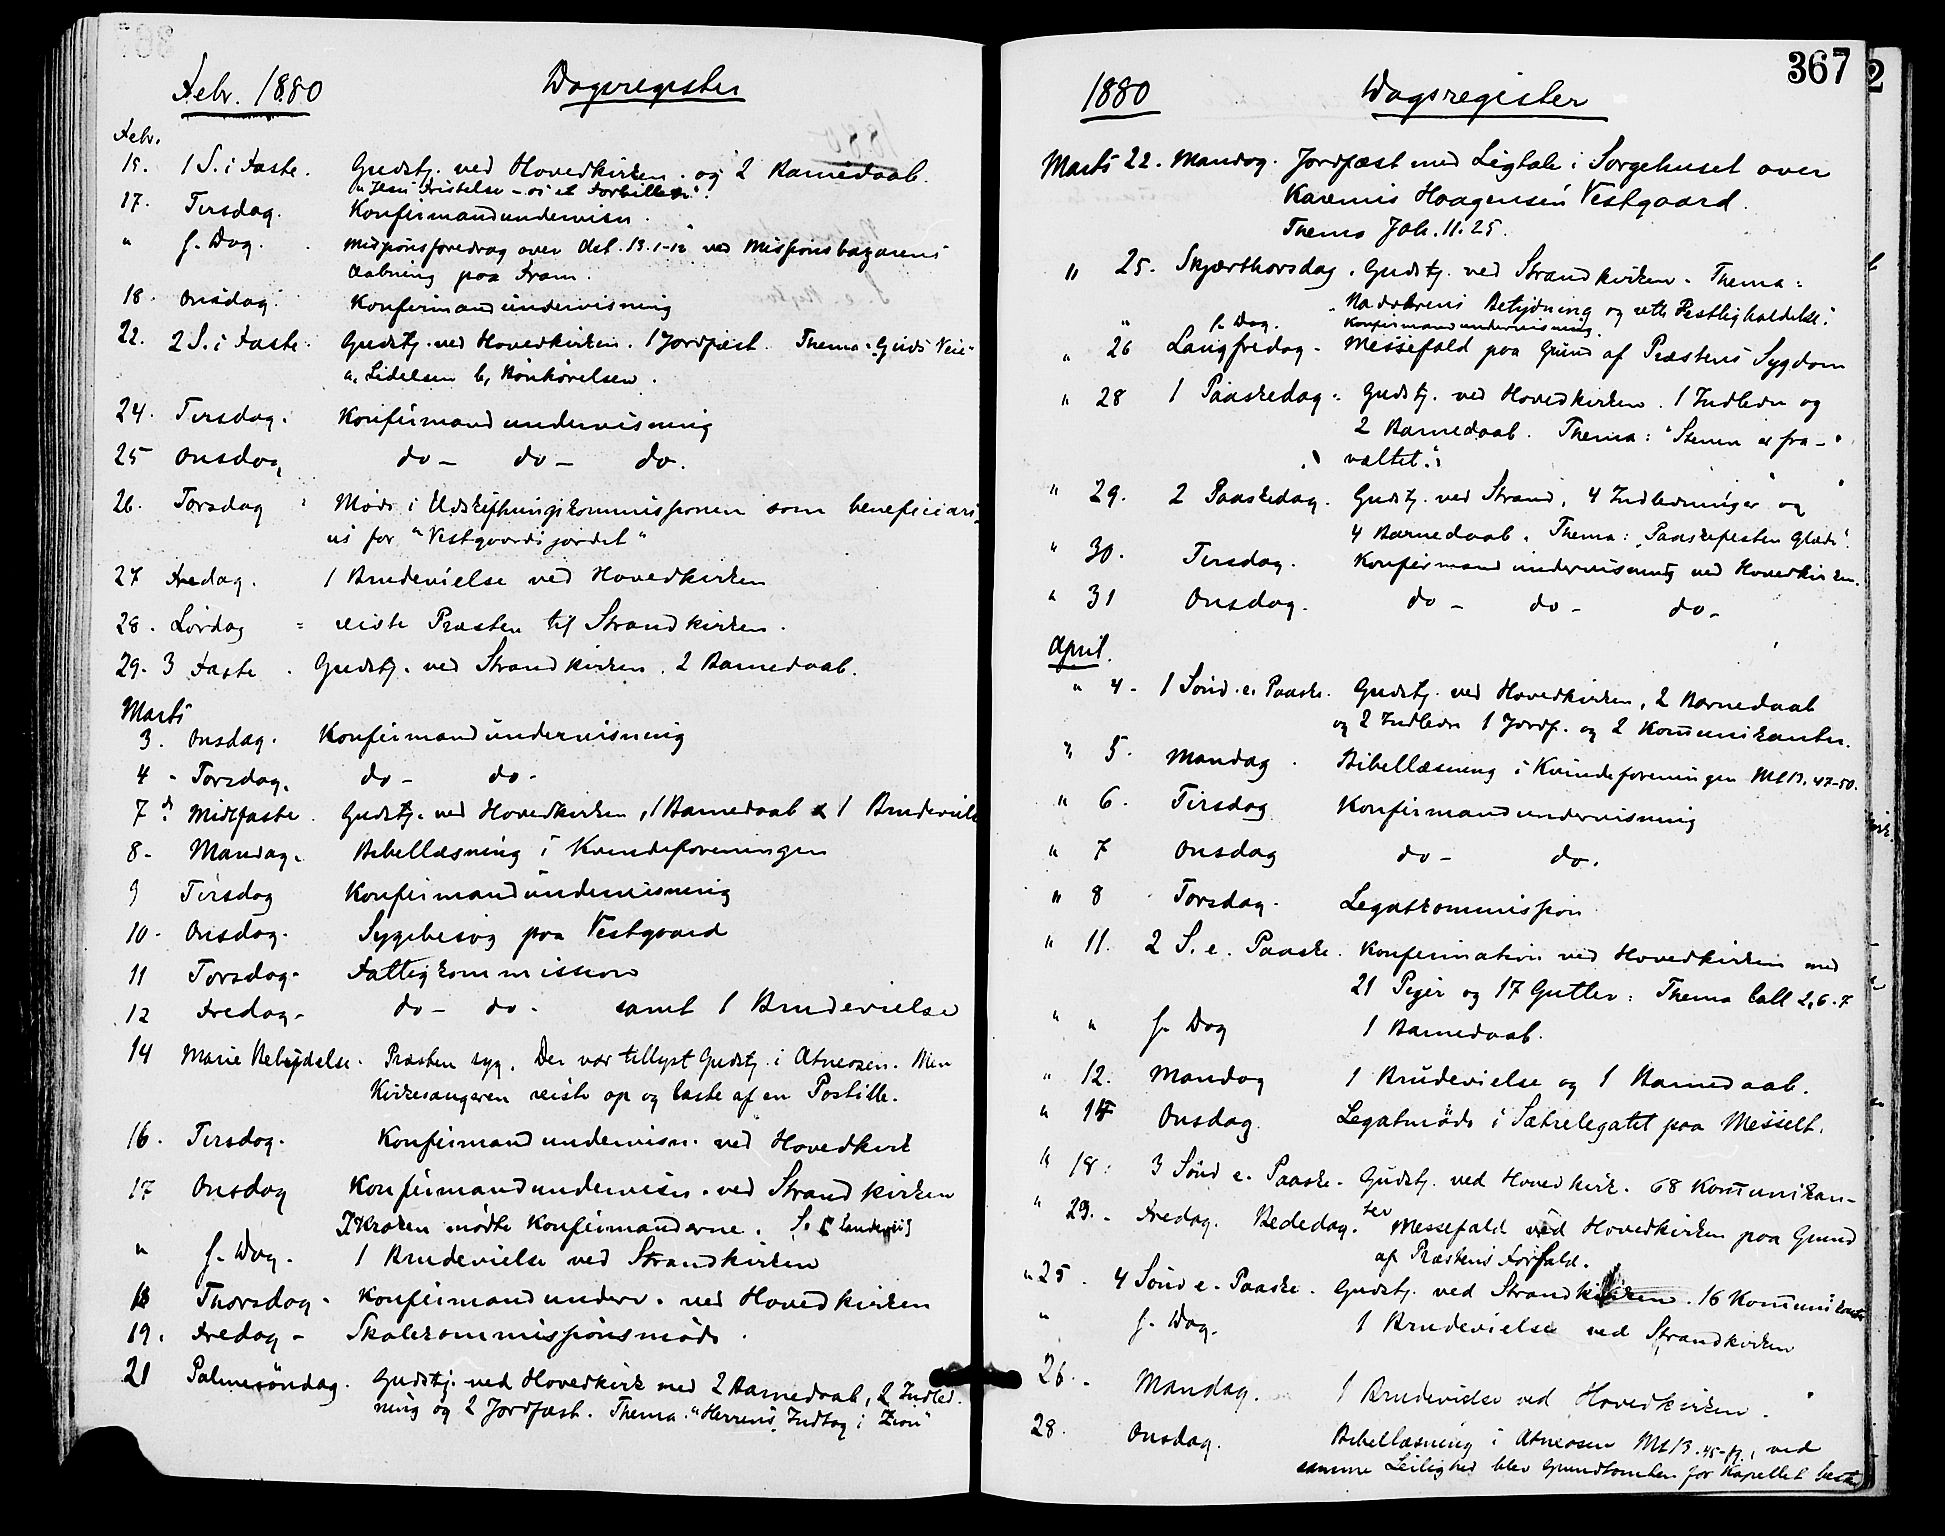 Febr. 1880 Dagsregister
Febr.
15. 1 S. i Faste. Gudstj. ved Hovedkirken. og 2 Barnedaab.
"Jesu Fristelse – os et Forbillede".
17. Tirsdag. Konfirmandundervisn.
" s. Dag. Missionsforedrag over Act. 13.1-12 ved Missionsbazarens
Aabning paa Fram.
18. Onsdag. Konfirmandundervisning
22. 2 S. i Faste. Gudstj. ved Hovedkirken. 1 Jordfæst. Thema: Guds Veie
a, Lidelsen b, Bønhørelsen.
24. Tirsdag. Konfirmandundervisning
25 Onsdag do – do – do.
26. Torsdag Møde i Udskiftningskommissionen som beneficiari-
us for "Vestgaardsjordet"
27 Fredag. 1 Brudevielse ved Hovedkirken
28. Lørdag = reiste Præsten til Strandkirken.
29. 3 Faste. Gudstj. ved Strandkirken. 2 Barnedaab.
Marts
3. Onsdag. Konfirmandundervisning
4 - Torsdag. do – do -
7 Midtfaste. Gudstj. ved Hovedkirken, 1 Barnedaab & 1 Brudeviels
8 - Mandag. Bibellæsning i Kvindeforeningen
9 Tirsdag Konfirmandundervisning
10 - Onsdag. Sygebesøg paa Vestgaard
11 Torsdag. Fattigkommission
12 Fredag. do – do - samt 1 Brudevielse
14 Marie Bebudelse. Præsten syg. Der var tillyst Gudstj. i Atneosen. Men
Kirkesangeren reiste op og læste af en Postille.
16. Tirsdag. Konfirmandundervisn. ved Hovedkirk
17 Onsdag Konfirmandundervisn. ved Strandkirken
7 Kraken mødte Konfirmanderne. S.
" s. Dag. 1 Brudevielse ved Strandkirken
18 Thorsdag. Konfirmandunderv. ved Hovedkirken
19. Fredag – Skolekommissionsmøde.
21 Palmesöndag. Gudstj. ved Hovedkirk med 2 Barnedaab, 2 Indled-
ning og 2 Jordfæst. Thema: "Herrens Indtog i Zion"
367
1880 Dagsregister
Marts 22. Mandag. Jordfæst med Ligtale i Sorgehuset over
Karenius Haagensen Vestgaard.
Thema Joh. 11.25.
" 25. Skjærthorsdag. Gudstj. ved Strandkirken. Thema:
Nadverens Betydning og rette Festligholdelse".
" s. Dag. Konfirmandundervisning
" 26 Langfredag – Messefald paa Grund af Præstens Sygdom
" 28 1 Paaskedag. Gudstj. ved Hovedkirken. 1 Indledn og
2 Barnedaab. Thema: "Stenen er fra-
væltet".
" 29. 2 Paaskedag. Gudstj. ved Strand, 4 Indledninger og
4 Barnedaab. Thema: "Paaskefesten Glæde".
" 30. Tirsdag. Konfirmandundervisning ved Hovedkirken.
" 31 Onsdag. do – do – do –
April.
" 4 – 1 Sönd. e. Paaske. Gudstj. ved Hovedkirken, 2 Barnedaab
og 2 Indledn 1 Jordf. og 2 Kommunikanter.
" 5. Mandag. Bibellæsning i Kvindeforeningen Mt 13. 47-50.
" 6. Tirsdag Konfirmandundervisning
" 7 Onsdag do – do.
" 8 Torsdag. Legatkommission
" 11. 2 S. e. Paaske. Konfirmation ved Hovedkirken med
21 Piger og 17 Gutter: Thema Coll 2,6-7
" " s. Dag 1 Barnedaab.
" 12. Mandag 1 Brudevielse og 1 Barnedaab.
" 14 Onsdag. Legatmøde i Sætrelegatet paa Messelt.
" 18. 3 Sönd e. Paaske. Gudstj. ved Hovedkirk. 68 Kommunikan-
ter
" 23. – Fredag. Bededag. Messefald ved Hovedkirken paa Grund
af Præstens Forfald.
" 25. 4 Sönd e. Paaske. Gudstj. ved Strandkirken. 16 Kommunikanter
" s. Dag. 1 Brudevielse ved Strandkirken
26. Mandag. 1 Brudevielse ved Hovedkirken.
28. Onsdag. Bibellæsning i Atneosen Mt 13. ved
samme Leilighed blev Grundtomten for Kapellet